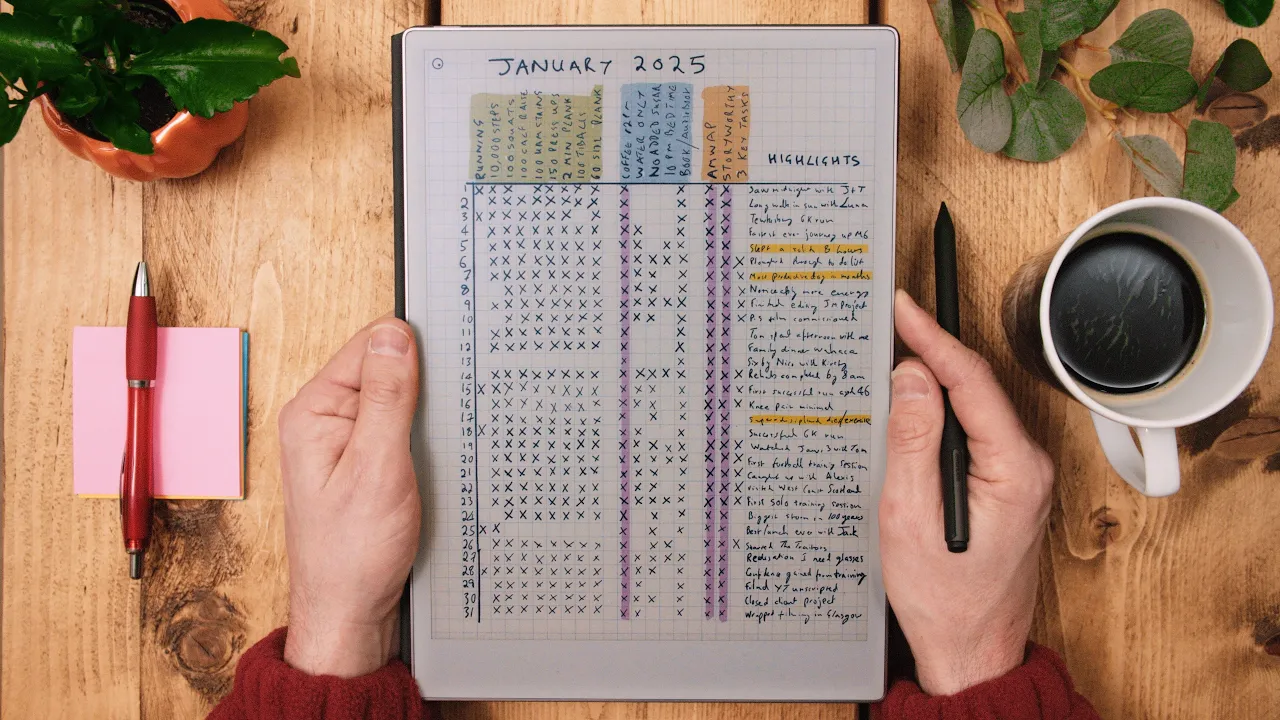 JANUARY 2025
RUNNING
10,000 STEPS
100 SQUATS
100 CALF RAISE
100 HAMSTRINGS
150 PRESS UPS
2 MIN PLANK
100 TIBIALIS
60 SIDE PLANK
COFFEE
WATER ONLY
NO ADDED SUGAR
10 PM BED TIME
BOOK/AUDIOBOOK
AMWAP
STORYWORTHY
3 KEY TASKS
HIGHLIGHTS
Saw midnight with J+T
2 Long walk in sun with Luna
3 Tewkesbury 6K run
4 Fastest ever journey up M6
5 Slept a solid 8 hours
6 Ploughed through to do list
7 Most productive day in months
8 Noticeably more energy
9 Finished editing JM Project
10 film commissioned
11 Tom spent afternoon with me
12 Family dinner Wahaca
13 with
14 completed by 8am
15 First successful run
16 Knee pain minimal
17
18 Successful 6K run
19 Watched Jaws 3 with Tom
20 First football training session
21 Caught up with Alexis
22 West Coast Scotland
23 First solo training session
24 Biggest storm in 100 years
25 Best lunch ever with Jack
26 The Traitors
27 Realisation I need glasses
28 gained from training
29 Filmed YT unscripted
30 Closed client project
31 Wrapped filming in Glasgow